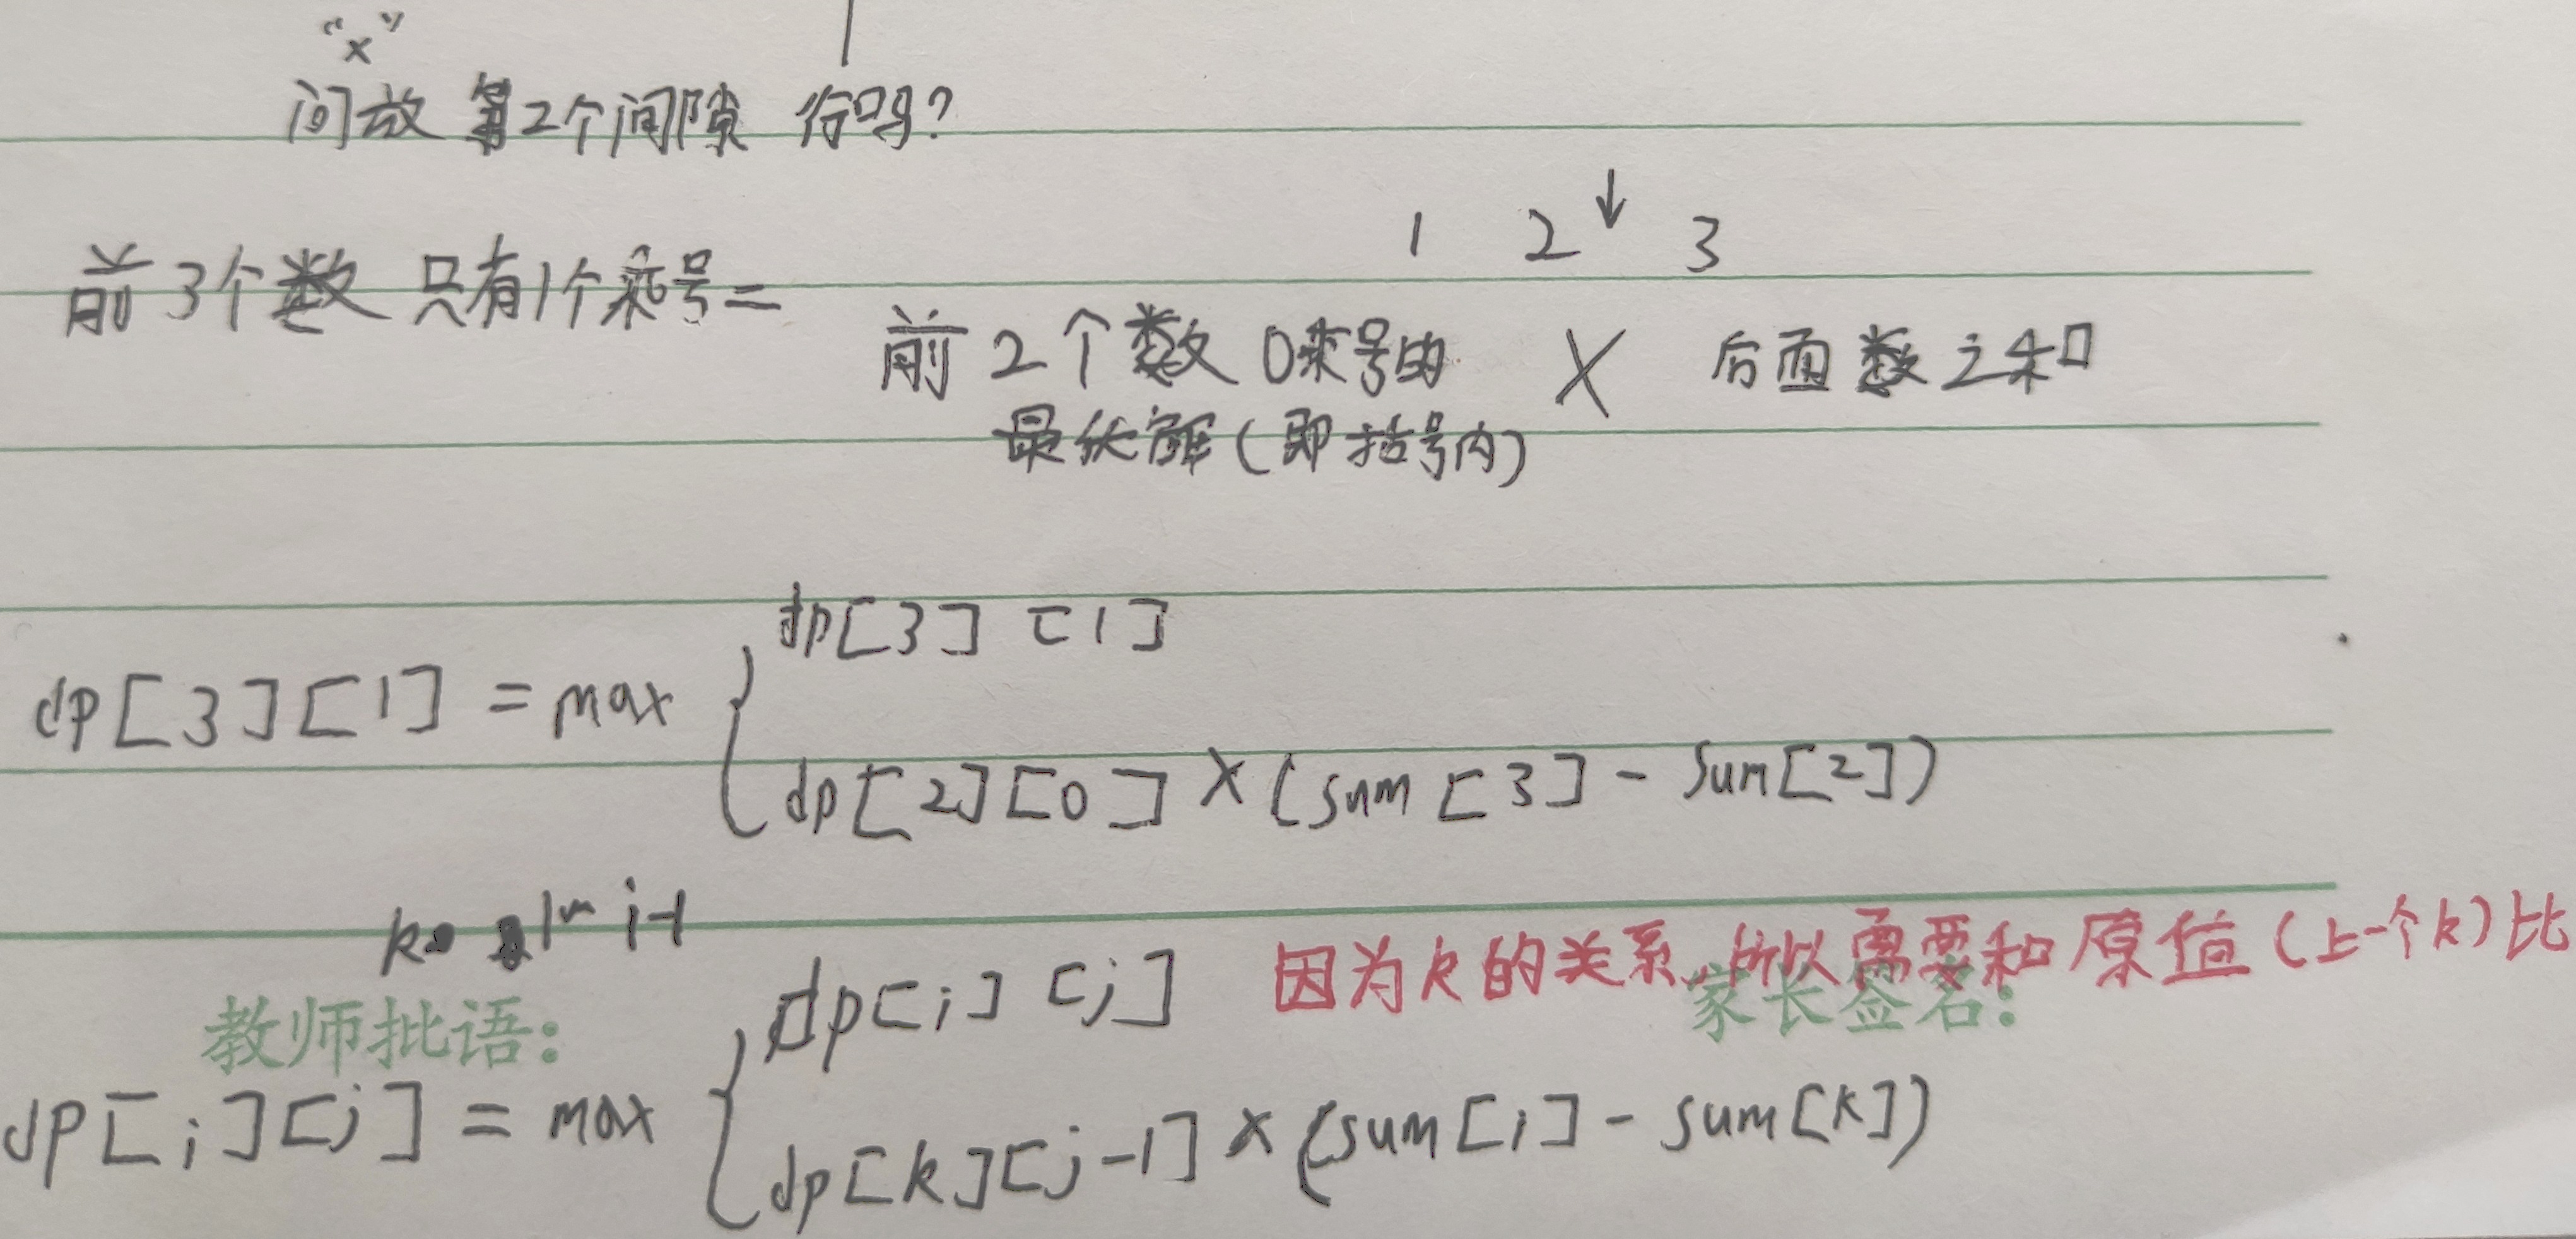 “×”
问放 第2个间隙 行吗?
1 2 ↓ 3
前3个数 只有1个乘号=
前2个数 0乘号的 × 后面数之和
最优解(即括号内)
dp[3][1]
dp[3][1] = max {
dp[2][0] × (sum[3] - sum[2])
k 1~i-1
因为k的关系,所以需要和原值(上一个k)比
dp[i][j]
教师批语:
家长签名:
dp[i][j] = max {
dp[k][j-1] × (sum[i] - sum[k])